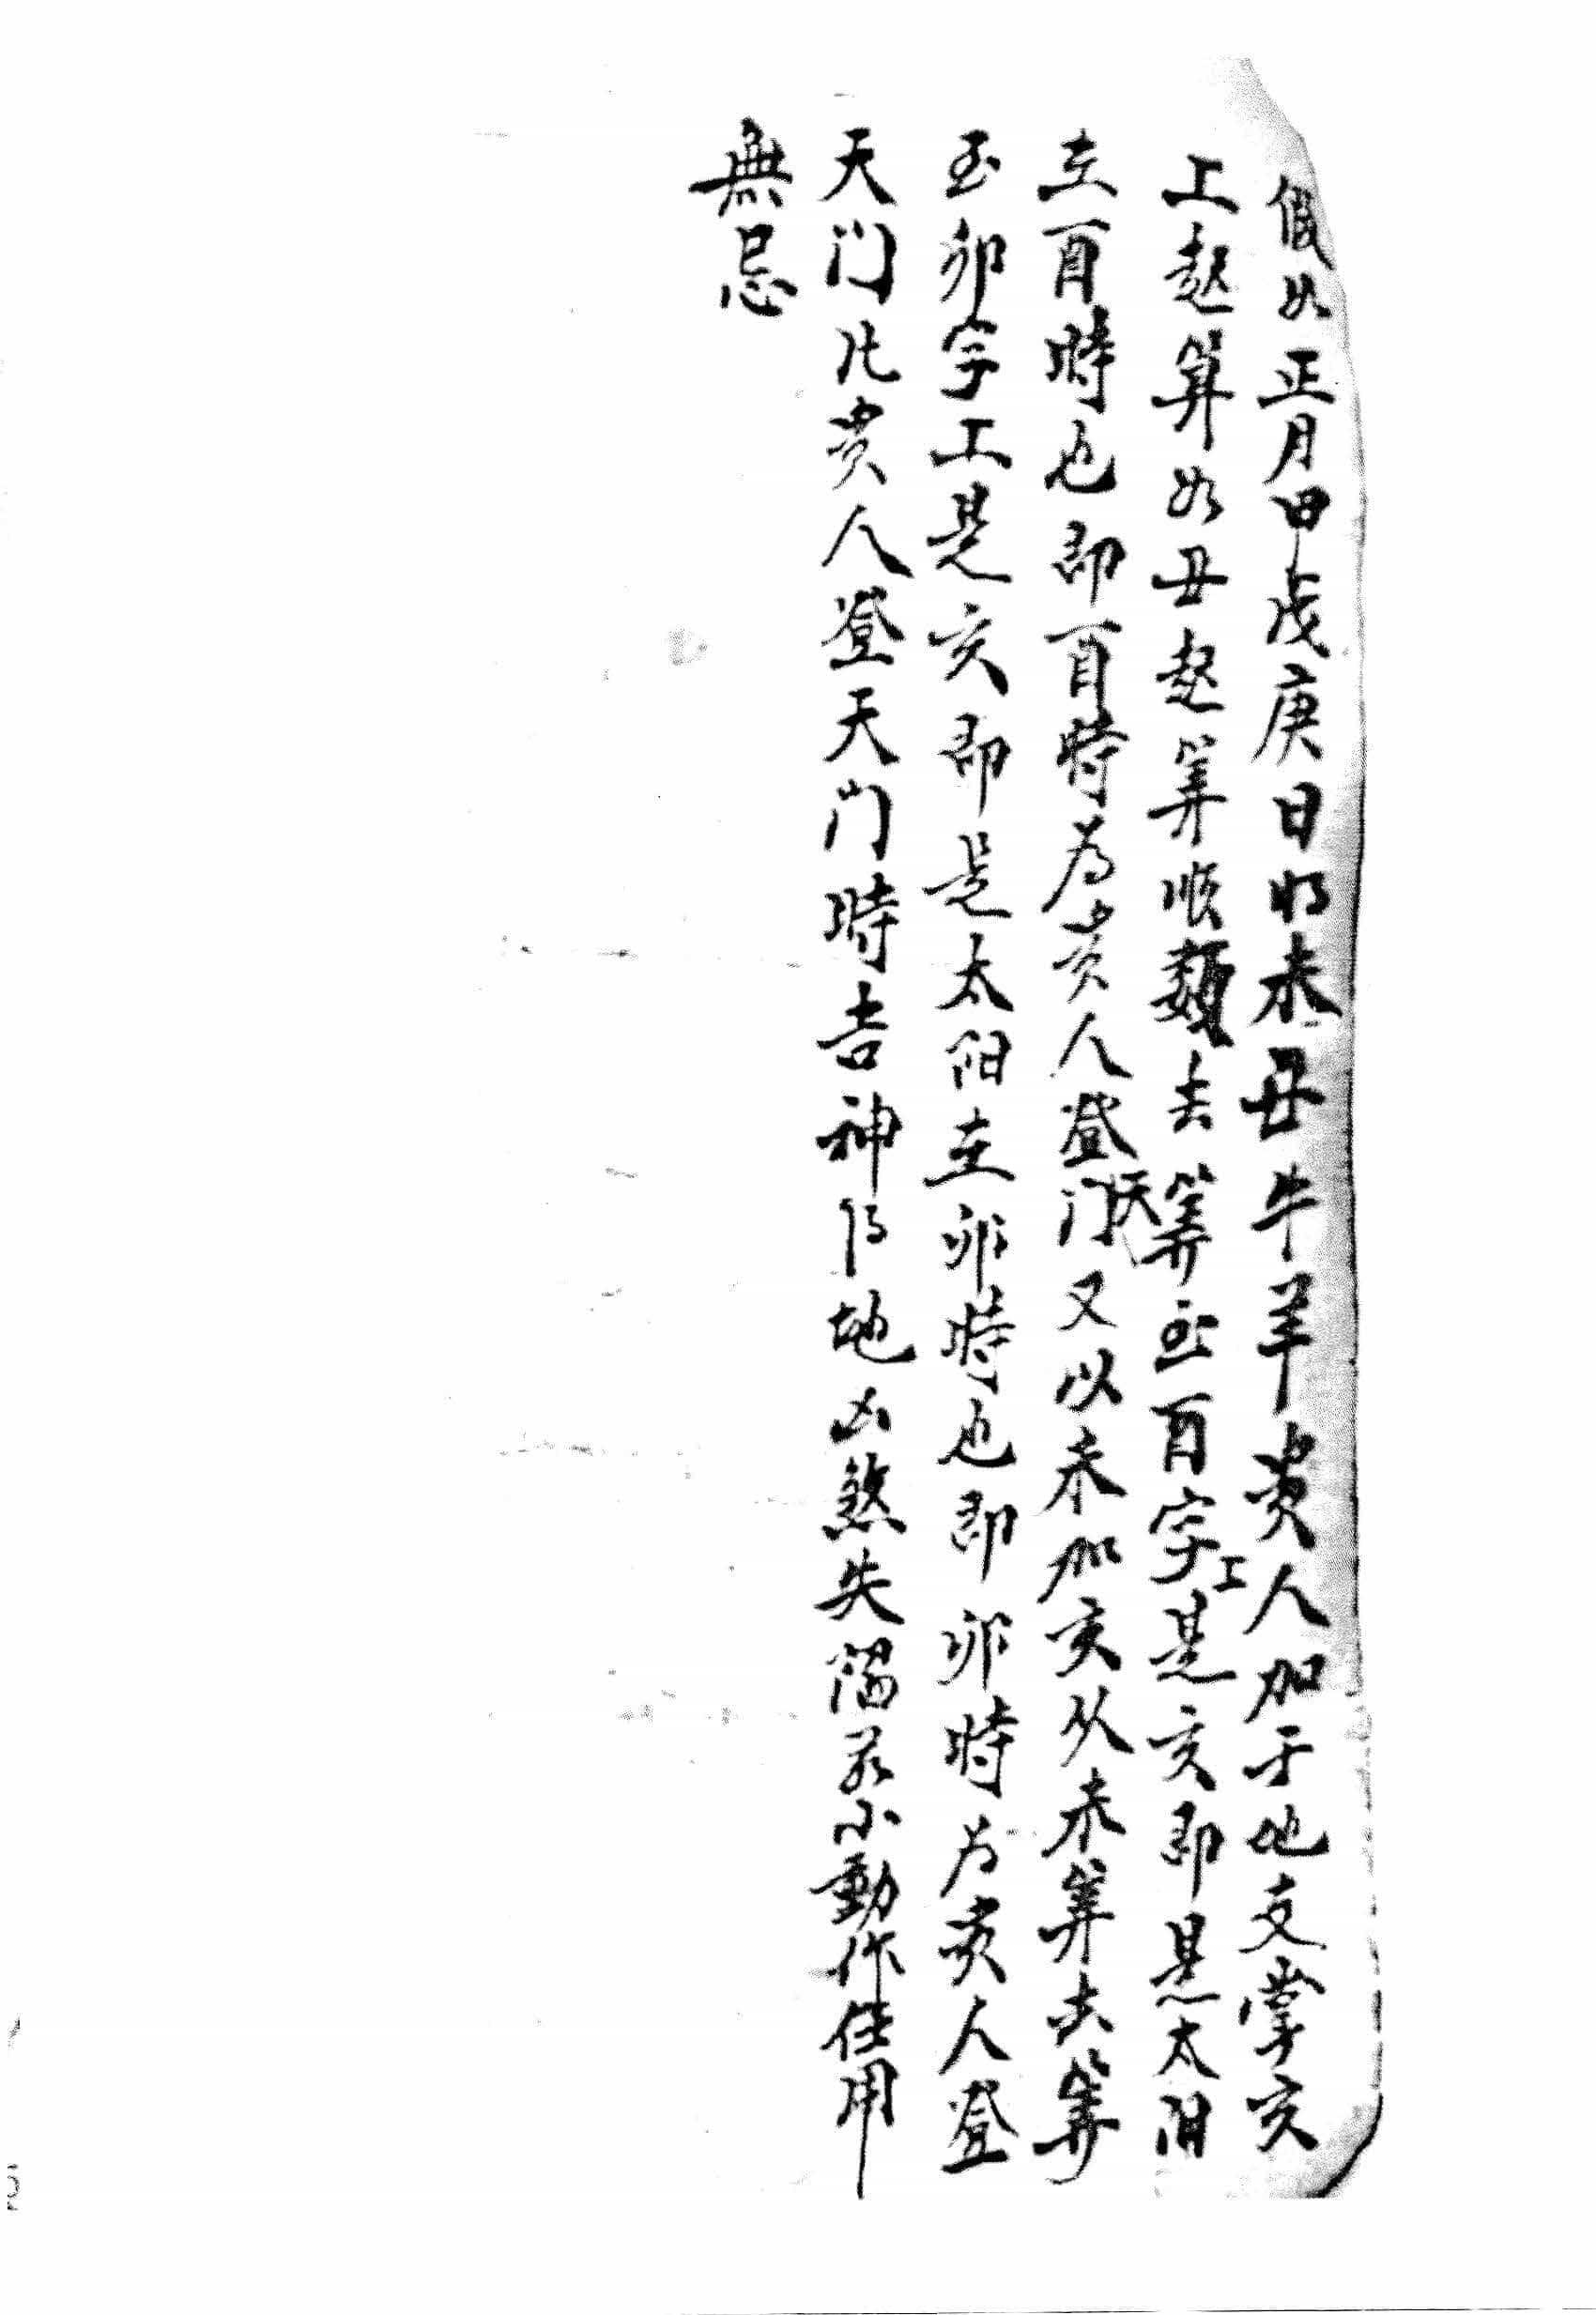 假如正月甲戊庚日将未丑牛羊貴人加于地支掌亥
上起算如丑起算順類去算至酉字上是亥即是太阳
在酉時也即酉時为貴人登天门又以未加亥从未算去算
至卯字上是亥即是太阳在卯時也即卯時为貴人登
天门此貴人登天门時吉神得地凶煞失陷若小動作任用
無忌